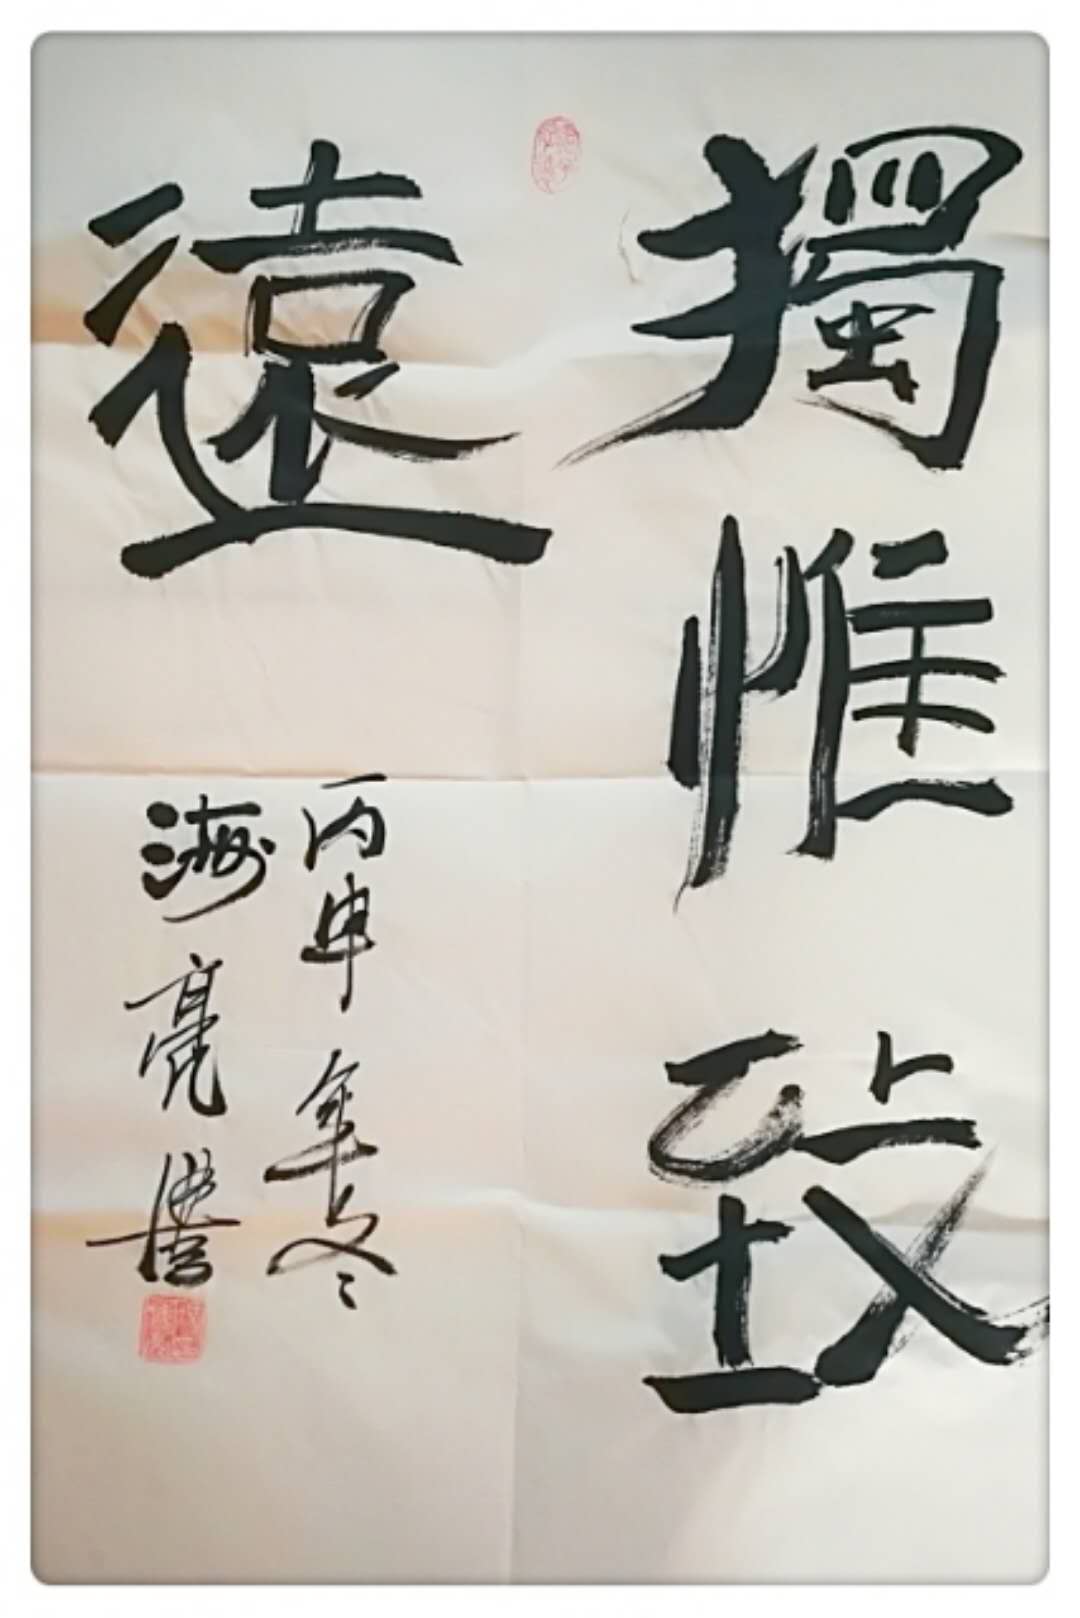 獨惟致
遠
丙申年冬
海亮